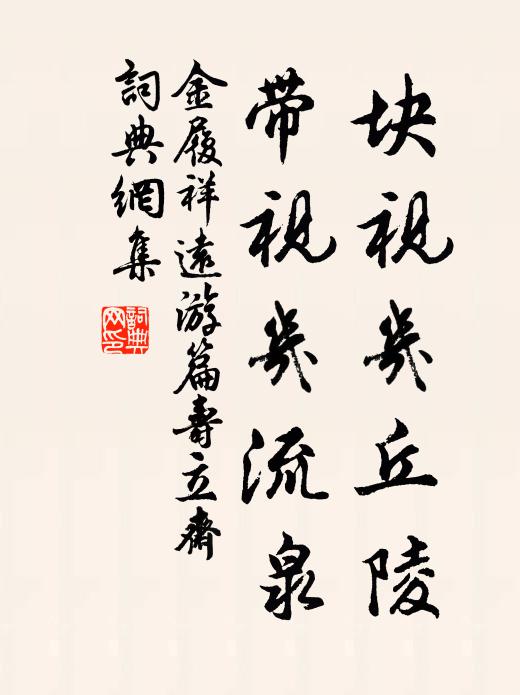 块视几丘陵
带视几流泉
金履祥远游篇寿立斋
词典网集
词典网印